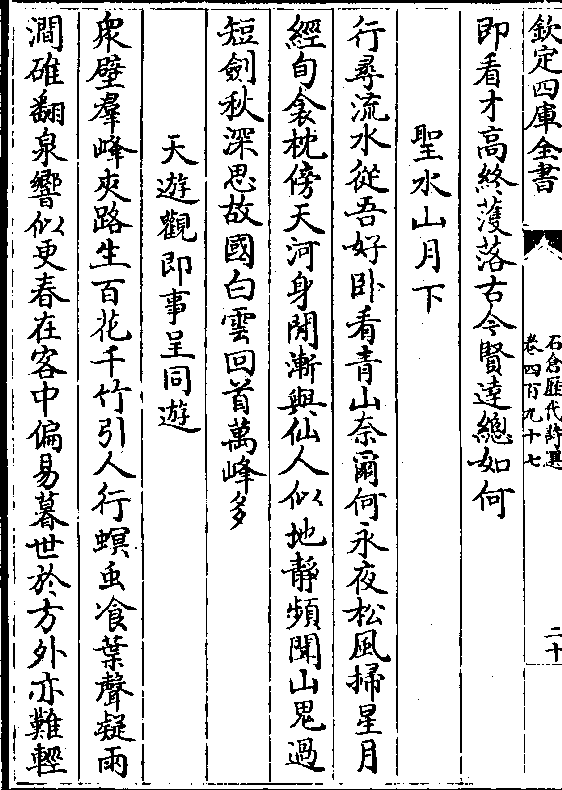 欽定四庫全書
石倉歷代詩選
卷四百九十七
二十
即看才高終濩落古今賢達總如何
聖水山月下
行尋流水從吾好卧看青山奈爾何永夜松風掃星月
經旬衾枕傍天河身閒漸與仙人似地靜頻聞山鬼過
短劍秋深思故國白雲回首萬峰多
天遊觀即事呈同遊
衆壁羣峰夾路生百花千竹引人行螟虫飡葉聲凝雨
澗碓翻泉響似更春在客中偏易暮世於方外亦難輕